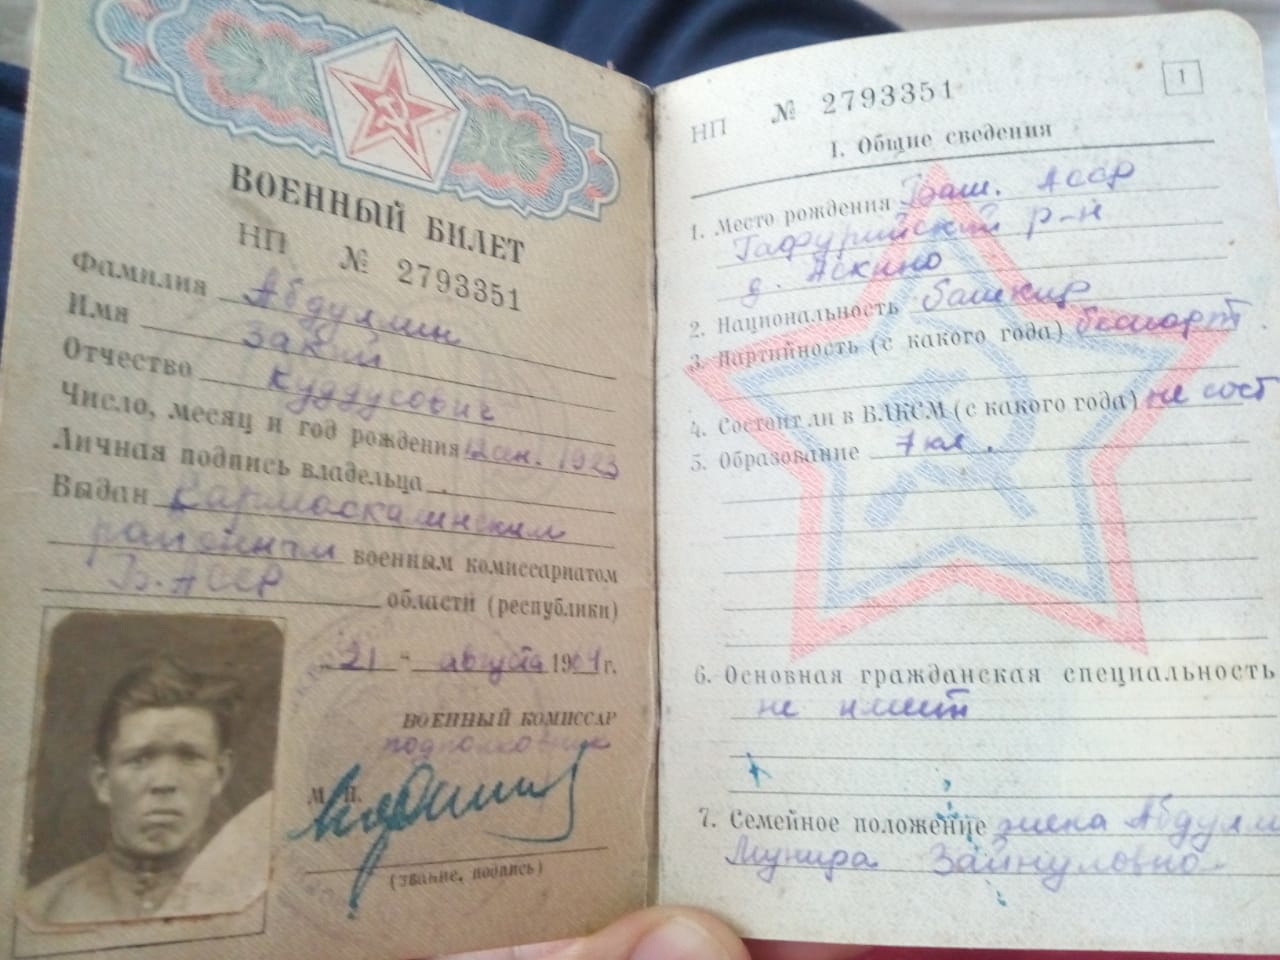 ВОЕННЫЙ БИЛЕТ
НП № 2793351
Фамилия Абдуллин
Имя Закий
Отчество Куддусович
Число, месяц и год рождения 12 сен. 1923
Личная подпись владельца
Выдан Кармаскалинским
районным военным комиссариатом
Б. АССР области (республики)
"21" августа 1964 г.
ВОЕННЫЙ КОМИССАР
подполковник
М. П.
(звание, подпись)
1
НП № 2793351
I. Общие сведения
1. Место рождения Баш. АССР
Гафурийский р-н
д. Аскино
2. Национальность башкир
3. Партийность (с какого года) беспарт.
4. Состоит ли в ВЛКСМ (с какого года) не сост
5. Образование 7 кл.
6. Основная гражданская специальность
не имеет
7. Семейное положение жена Абдулли
Мунира Зайнуловно